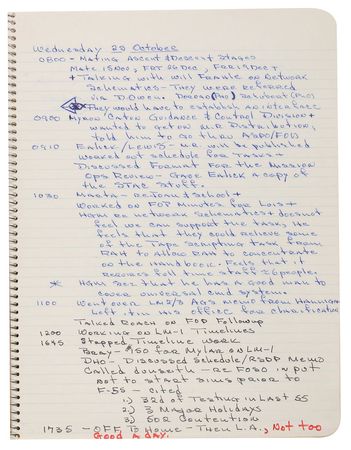 Wednesday 29 October
0800 - Mating Ascent & Descent Stages
Mate 15 Nov, FRT 26 Dec, FRR 19 Dec +
+ Talking with Will Fenner on Network
Schematics - They were referred
via D. Owen.
They would have to establish an interface
0900 Myron/Caton Guidance & Control Division +
wanted to get on our Distribution,
told him to go thru ASPO/FOD
0910 Enlick/Lewis - will be published
worked out schedule for Tasks -
Discussed Format for the Mission
Ops Review - Gave Enlick a copy of
the STAC stuff.
1030 Marta - re: Joan & School +
Worked on FOP Minutes for Lois +
HGM re network schematics + does not
feel we can support the task. He
feels that they could relieve some
of the Tape Scripting task from
RAH to allow RAH to concentrate
on the Handbook. Feels that it
requires full time staff ≈ 6 people.
* HGM sez that he has a good man to
cover universal card system.
1100 Went over LM2/3 AGS memo from Hannigan
Left it in his office for clarification
Talked Roach on FOD Followup
1200 Working on LM-1 Timelines
1645 Stopped Timeline work.
Bray - 450 for Mylar on LM-1
DHO - Discussed Schedule/RSDP Memo
Called - re FOSO input
not to start sims prior to
F-55 - cited
1.) 32d of Testing in Last 55
2.) 3 Major Holidays
3.) GOR Contention
1735 - Off to Home - Then L.A., Not too
Good a day.